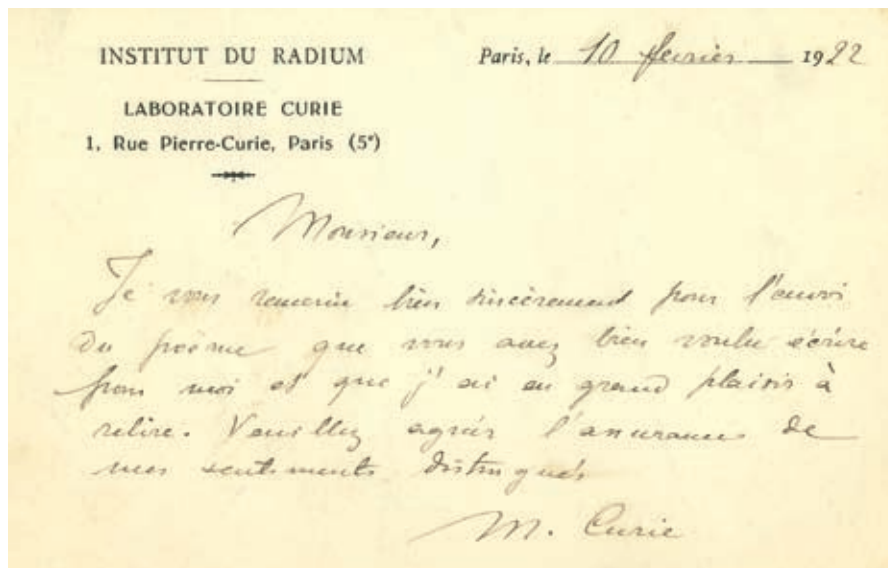 INSTITUT DU RADIUM
Paris, le 10 fevrier 1922
LABORATOIRE CURIE
1, Rue Pierre-Curie, Paris (5e)
Monsieur,
Je vous remercie bien sincèrement pour l'envoi
du poème que vous avez bien voulu écrire
pour moi et que j'ai eu grand plaisir à
relire. Veuillez agréer l'assurance de
mes sentiments distingués
M. Curie